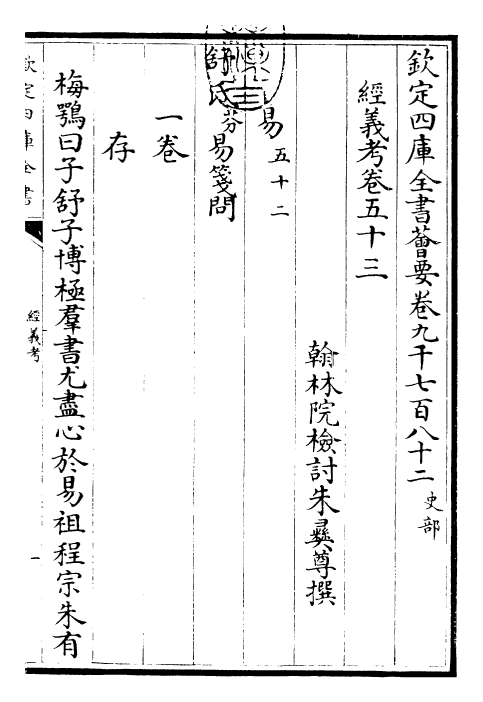 欽定四庫全書薈要卷九千七百八十二 史部
經義考卷五十三
翰林院檢討朱彝尊撰
易 五十二
舒氏芬易箋問
一卷
存
梅鶚曰子舒子博極羣書尤盡心於易祖程宗朱有
欽定四庫全書
經義考
一